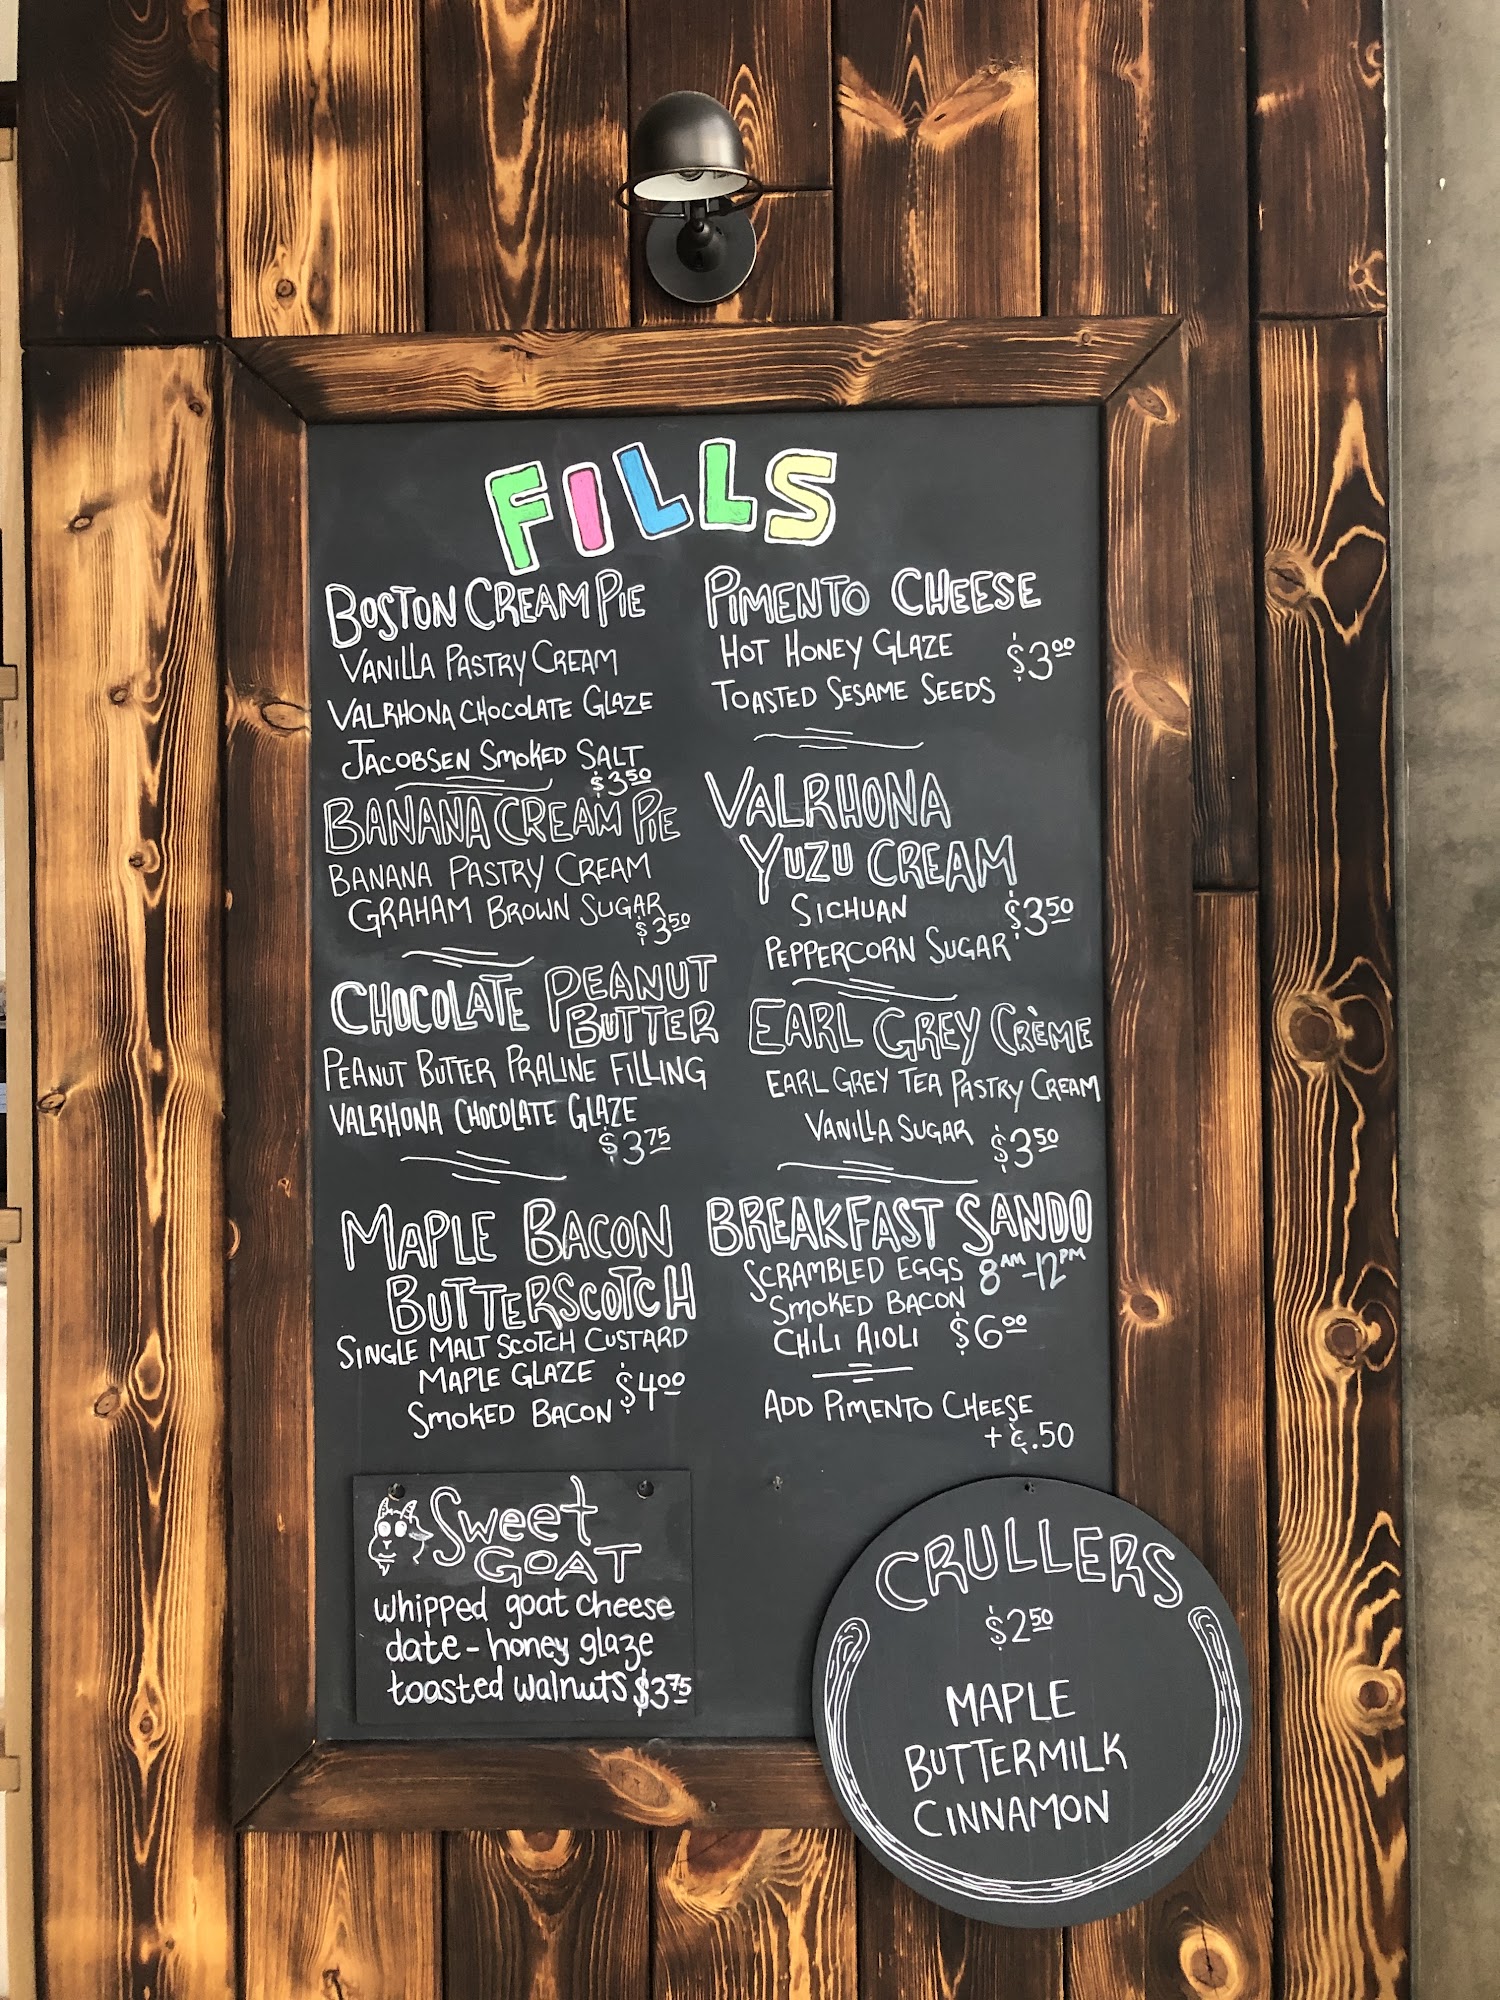 FILLS
BOSTON CREAM PIE
VANILLA PASTRY CREAM
VALRHONA CHOCOLATE GLAZE
JACOBSEN SMOKED SALT
$3.50
BANANA CREAM PIE
BANANA PASTRY CREAM
GRAHAM BROWN SUGAR
$3.50
CHOCOLATE PEANUT
BUTTER
PEANUT BUTTER PRALINE FILLING
VALRHONA CHOCOLATE GLAZE
$3.75
MAPLE BACON
BUTTERSCOTCH
SINGLE MALT SCOTCH CUSTARD
MAPLE GLAZE
SMOKED BACON $4.00
PIMENTO CHEESE
HOT HONEY GLAZE
TOASTED SESAME SEEDS
$3.00
VALRHONA
YUZU CREAM
SICHUAN
PEPPERCORN SUGAR
$3.50
EARL GREY CRÈME
EARL GREY TEA PASTRY CREAM
VANILLA SUGAR $3.50
BREAKFAST SANDO
SCRAMBLED EGGS 8AM-12PM
SMOKED BACON
CHILI AIOLI $6.00
ADD PIMENTO CHEESE
+ ¢.50
Sweet
GOAT
whipped goat cheese
date - honey glaze
toasted walnuts $3.75
CRULLERS
$2.50
MAPLE
BUTTERMILK
CINNAMON